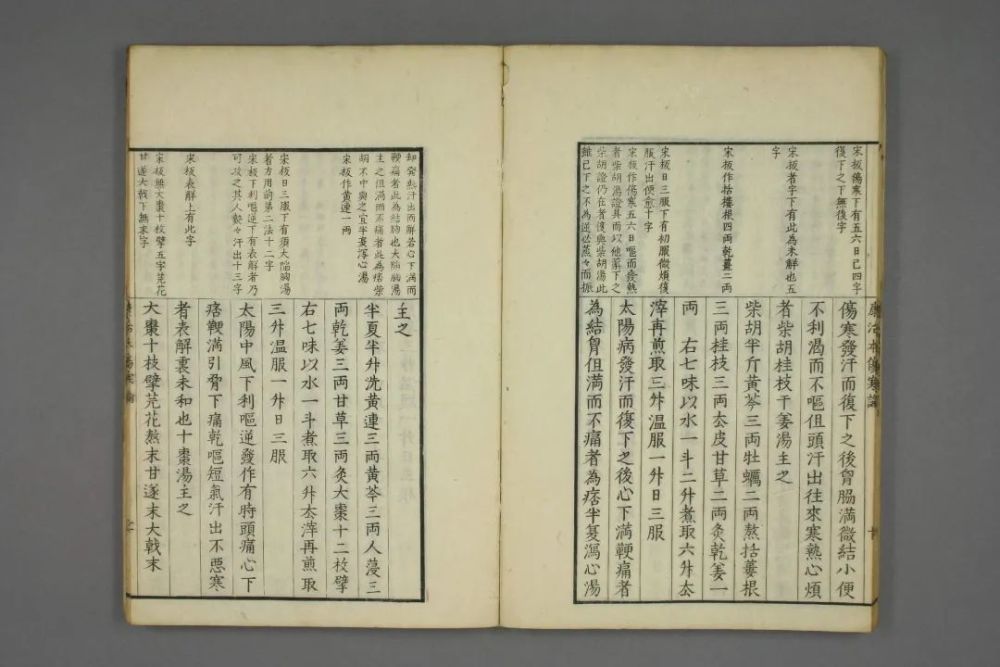 宋板傷寒下有五六日已四字
復下之下無復字
宋板者字下有此為未解也五
字
宋板作括樓根四兩乾薑二兩
宋板日三服下有初服微煩復
服汗出便愈十字
宋板作傷寒五六日嘔而發熱
者柴胡湯證具而以他藥下之
柴胡證仍在者復與柴胡湯此
雖已下之不為逆必蒸々而振
傷寒發汗而復下之後胷脇滿微結小便
不利渴而不嘔但頭汗出往來寒熱心煩
者柴胡桂枝干姜湯主之
柴胡半斤黃芩三兩牡蠣二兩熬括蔞根
三兩桂枝三兩厺皮甘草二兩灸乾姜一
兩 右七味以水一斗二升煮取六升厺
滓再煎取三升溫服一升日三服
太陽病發汗而復下之後心下滿鞕痛者
為結胷但滿而不痛者為痞半夏瀉心湯
康治本傷寒論
十
却發熱汗出而解若心下滿而
鞕痛者此為結胸也大陷胸湯
主之但滿而不痛者此為痞柴
胡不中與之宜半夏瀉心湯
宋板作黃連一兩
宋板日三服下有須大陷胸湯
者方用前第二法十二字
宋板下利嘔逆下有表解者乃
可攻之其人漐々汗出十三字
宋板表解上有此字
宋板無大棗十枚擘五字芫花
甘遂大戟下無末字
主之
半夏半升洗黃連三兩黃芩三兩人蓡三
兩乾姜三兩甘草三兩灸大棗十二枚擘
右七味以水一斗煮取六升厺滓再煎取
三升溫服一升日三服
太陽中風下利嘔逆發作有時頭痛心下
痞鞕滿引脅下痛乾嘔短氣汗出不惡寒
者表解裏未和也十棗湯主之
大棗十枚擘芫花熬末甘遂末大戟末